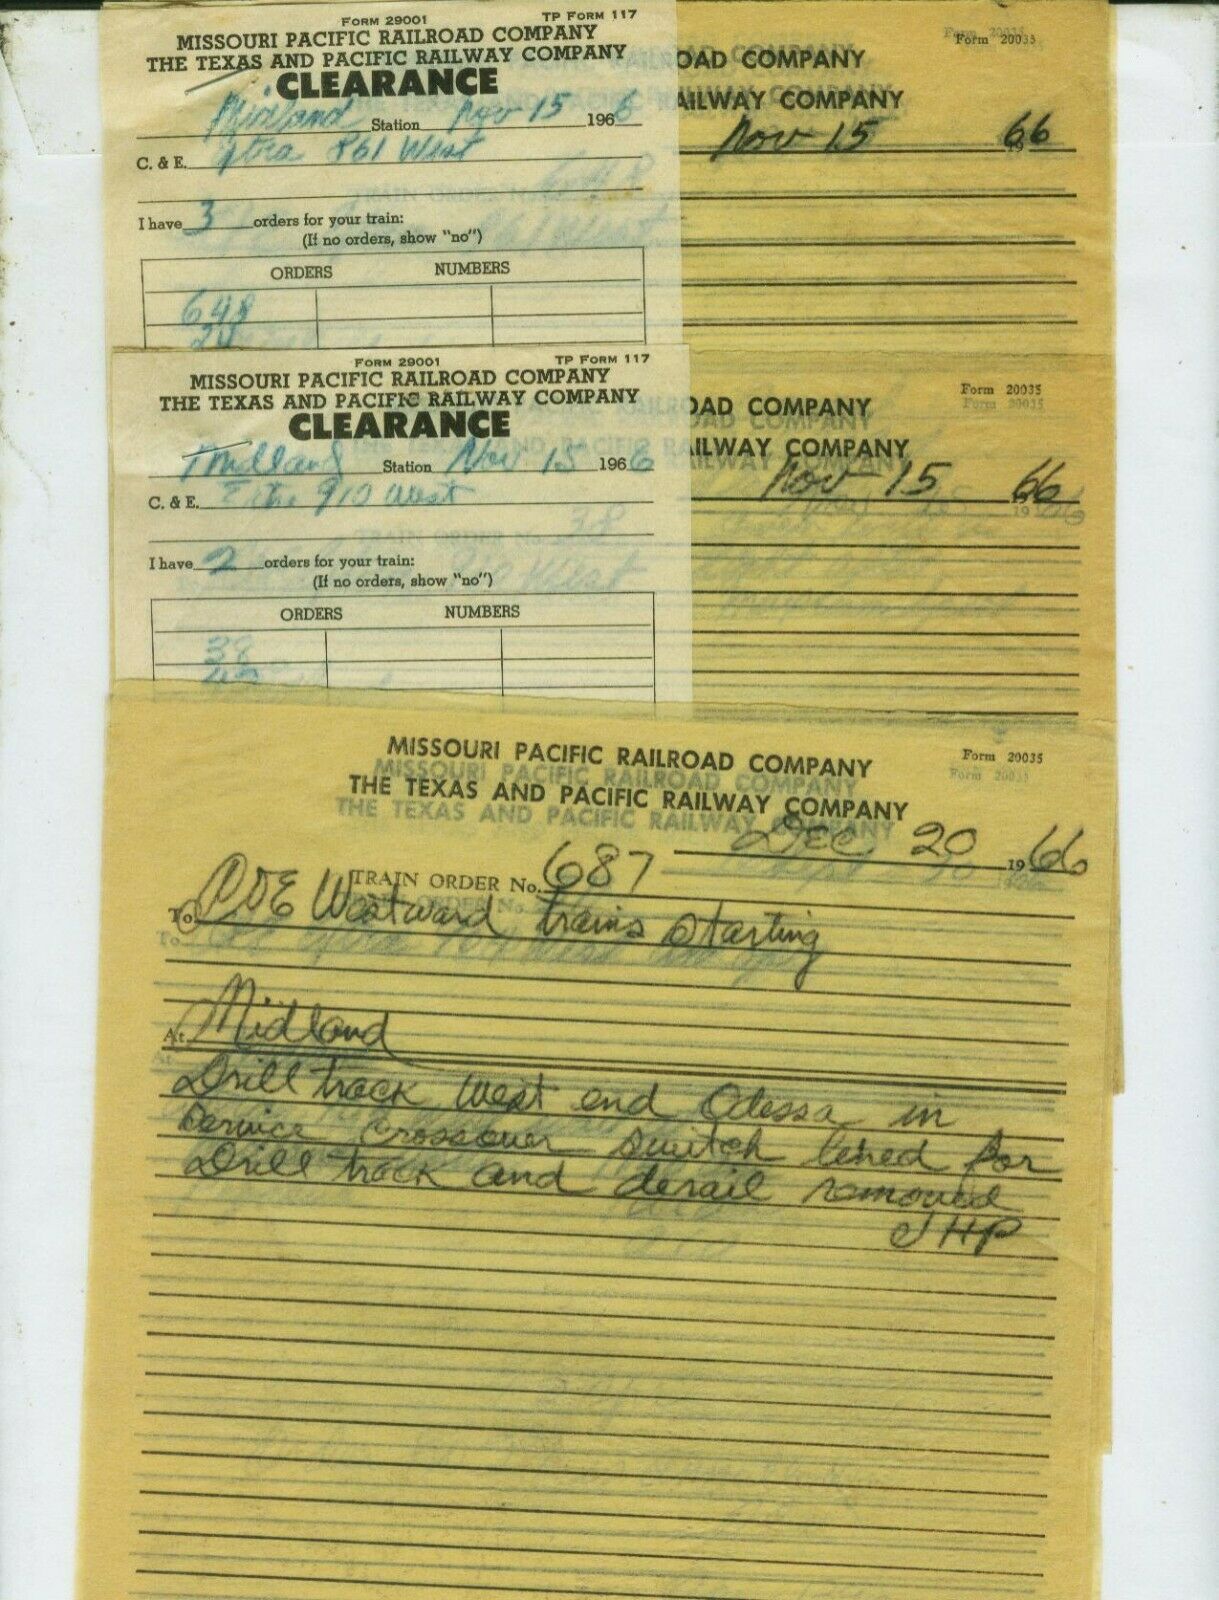 FORM 29001 TP FORM 117
MISSOURI PACIFIC RAILROAD COMPANY
THE TEXAS AND PACIFIC RAILWAY COMPANY
CLEARANCE
Midland Station Nov 15 1966
C. & E. Xtra 861 West
I have 3 orders for your train:
(If no orders, show "no")
ORDERS NUMBERS
648
Form 20035
OAD COMPANY
AILWAY COMPANY
Nov 15 66
FORM 29001 TP FORM 117
MISSOURI PACIFIC RAILROAD COMPANY
THE TEXAS AND PACIFIC RAILWAY COMPANY
CLEARANCE
Midland Station Nov 15 1966
C. & E. 910 West
I have 2 orders for your train:
(If no orders, show "no")
ORDERS NUMBERS
38
Form 20035
OAD COMPANY
AILWAY COMPANY
Nov 15 66
Form 20035
MISSOURI PACIFIC RAILROAD COMPANY
THE TEXAS AND PACIFIC RAILWAY COMPANY
Dec 20 1966
TRAIN ORDER No. 687
To C&E Westward trains starting
At Midland
Drill track west end Odessa in
service crossover switch lined for
Drill track and derail removed
JHP